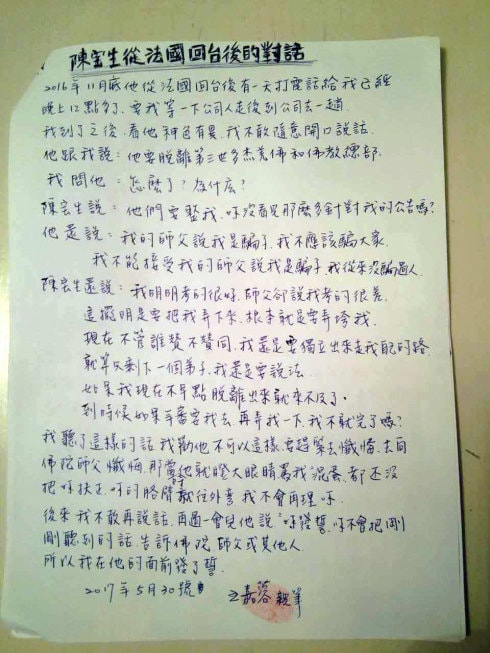 陳宝生從法國回台後的對話
2016年11月底他從法國回台後有一天打電話給我已經
晚上12點多了,要我等一下公司人走後到公司去一趟
我到了之後,看他神色有異,我不敢隨意開口說話.
他跟我說:他要脫離第三世多杰羌佛和佛教總部.
我問他:怎麼了?為什么?
陳宝生說:他們要整我.吥沒看見那麼多針對我的公告嗎?
他還說:我的師父說我是騙子,我不應該騙大家.
我不能接受我的師父說我是騙子,我從來沒騙過人.
陳宝生還說:我明明考的很好,師父卻說我考的很差.
這擺明是要把我弄下來,根本就是要弄垮我.
現在不管誰贊不贊同,我還是要獨立出來走我自己的路
就算只剩下一個弟子,我還是要說法.
如果我現在不早點脫離出來就來不及了.
到時候如果年審要我去,再弄我一下,我不就完了嗎?
我聽了這樣的話,我勸他不可以這樣要趕緊去懺悔,去向
佛陀師父懺悔,那時他就瞪大眼睛罵我混蛋.都还沒
把吥扶正,吥的胳臂就往外彎,我不會再理吥.
後來我不敢再說話,再過一會兒他說"吥發誓,吥不會把剛
剛聽到的話,告訴佛陀師父或其他人
所以我在他的面前發了誓.
2017年5月30號
嘉蓉 親筆